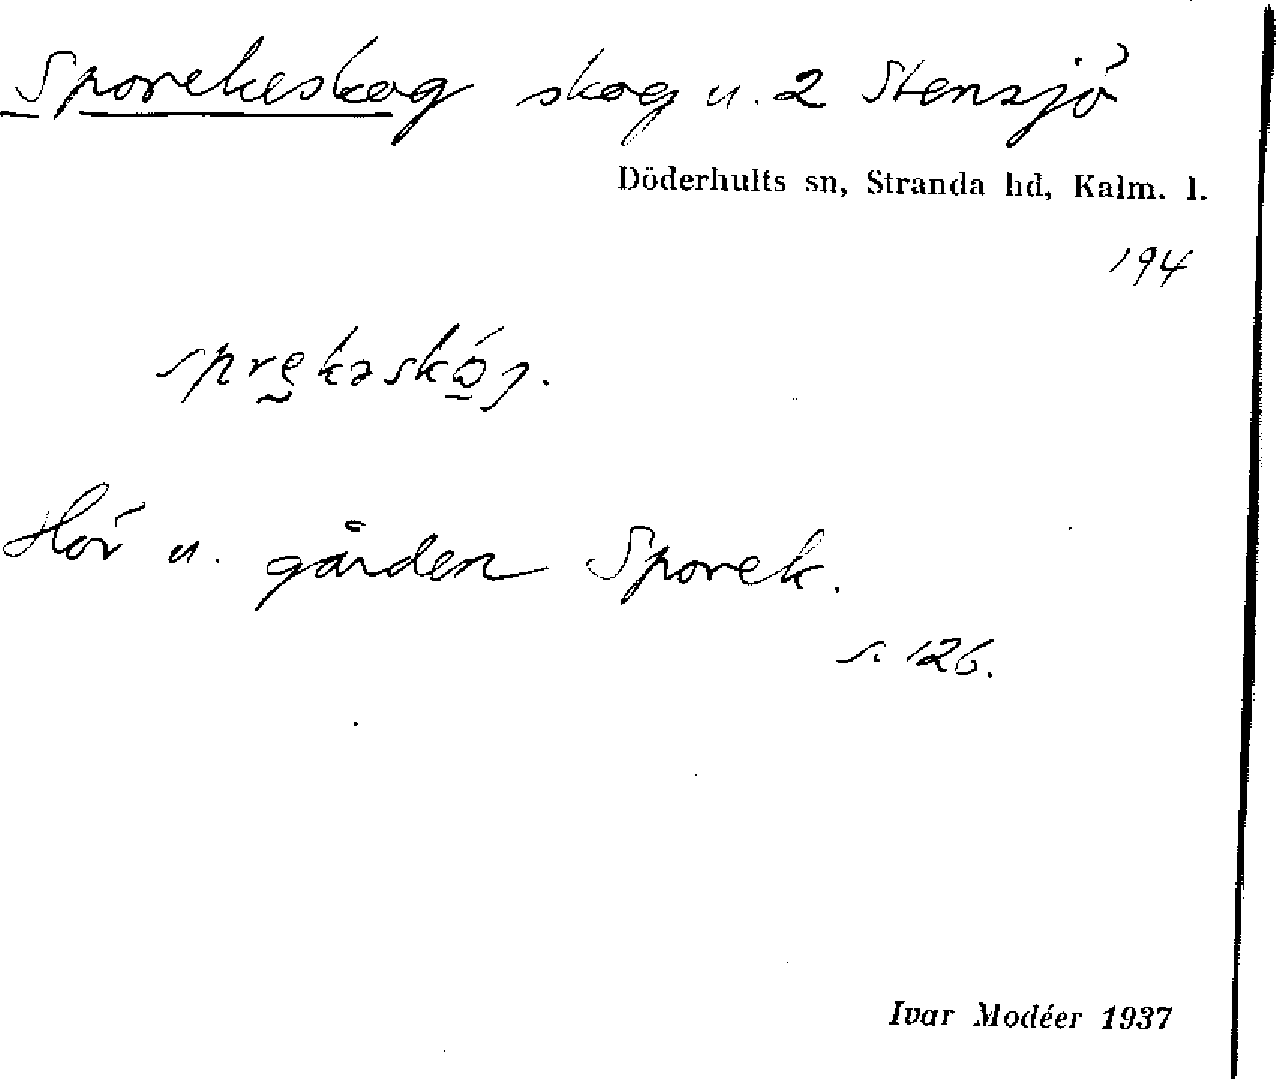 Sporekeskog skog u. 2 Stensjö
Döderhults sn, Stranda hd, Kalm. l.
194
Hör u. gården Sporek.
s. 126.
Ivar Modéer 1937